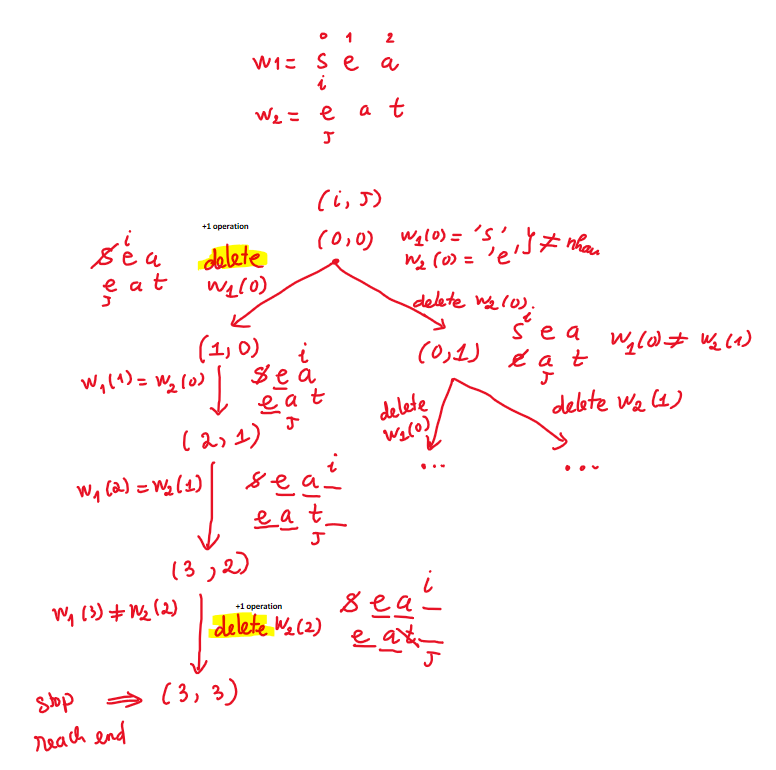 0 1 2
w1 = s e a
i
w2 = e a t
J
(i, J)
+1 operation
(0,0)
w1(0) = 's' } ≠ nhau
w2(0) = 'e'
i
s e a
e a t
J
delete
w1(0)
delete w2(0)
(1, 0)
i
s e a
e a t
J
w1(1) = w2(0)
(0,1)
i
s e a
e a t
J
w1(0) ≠ w2(1)
delete
w1(0)
...
delete w2(1)
...
(2, 1)
w1(2) = w2(1)
i
s e a _
e a t _
J
(3, 2)
w1(3) ≠ w2(2)
+1 operation
delete w2(2)
i
s e a _
e a t _
J
stop ⇒ (3, 3)
reach end